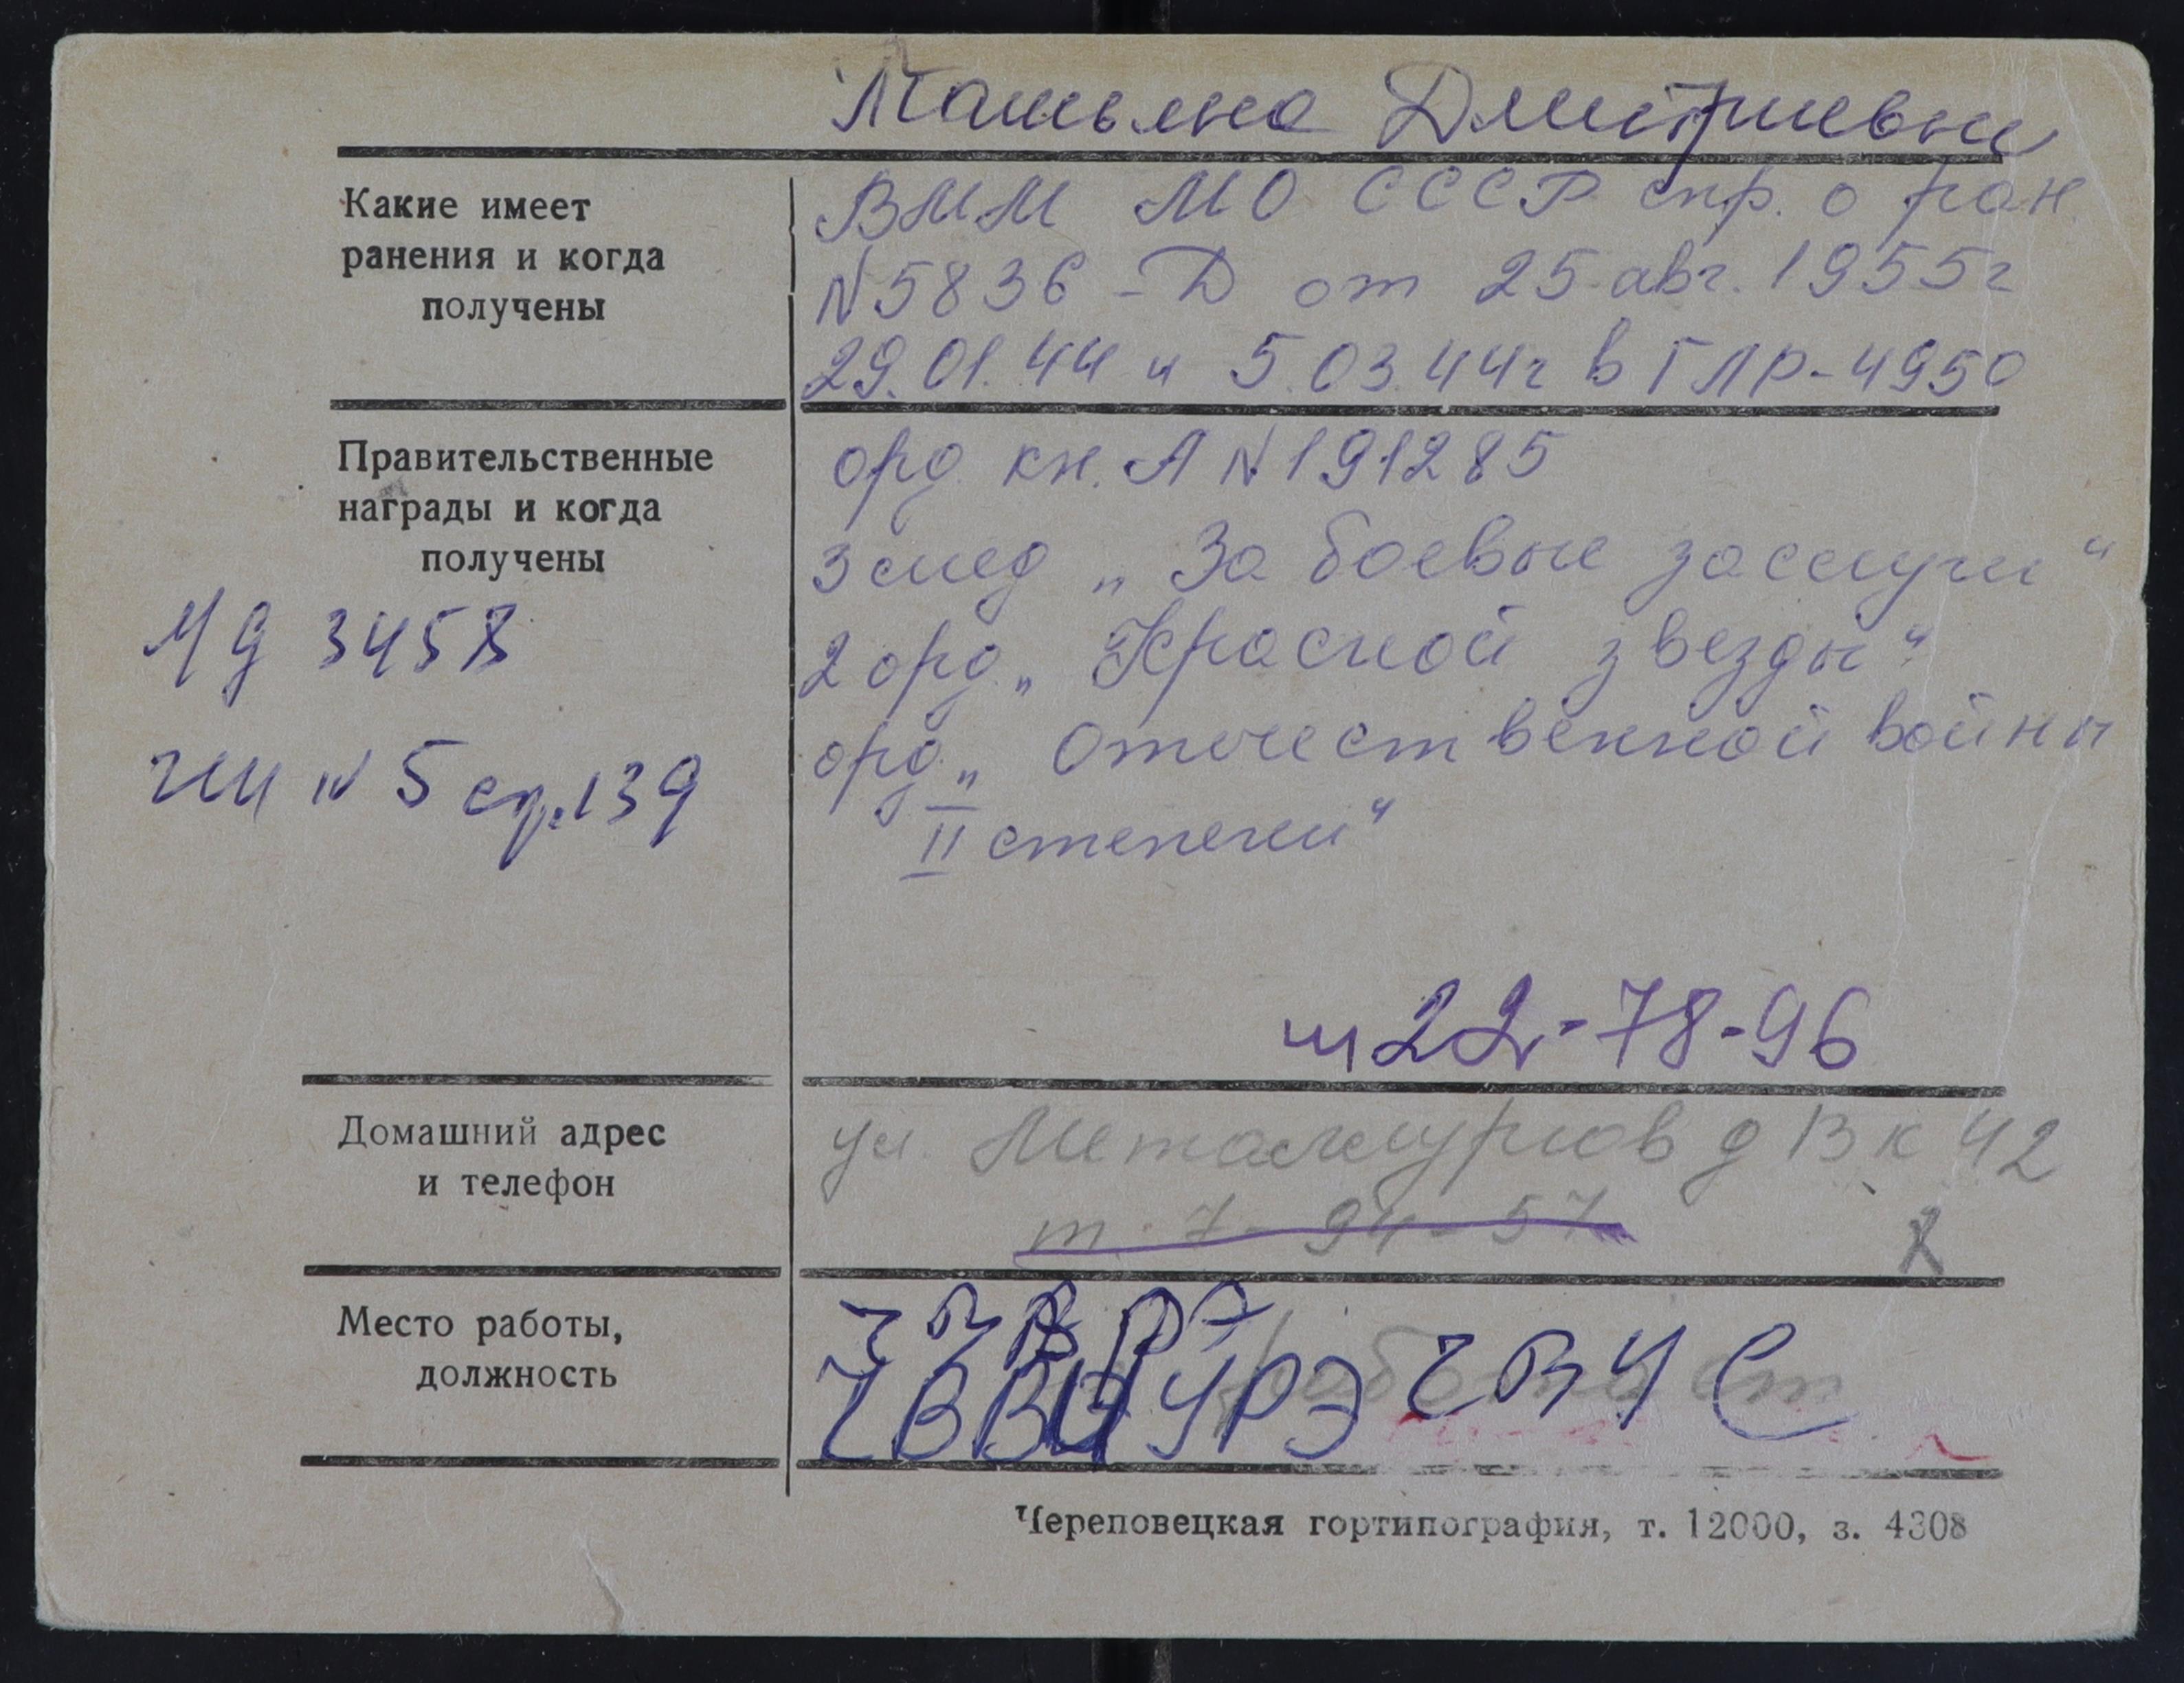 Татьяна Дмитриевн
Какие имеет
ранения и когда
получены
ВММ МО СССР спр. о ран.
N 5836-Д от 25 авг. 1955г
29.01.44 и 5.03.44г в ГЛР-4950
Правительственные
награды и когда
получены
орд. кн. А N 191285
3 мед „За боевые заслуги“
2 орд. „Красной звезды“
орд. „Отечественной войны
II степени“
УД 3458
N 5 стр. 139
т 22-78-96
Домашний адрес
и телефон
ул. Металлургов д 13 к 42
т. 7-94-57
Место работы,
должность
ЧВВИУРЭ
Череповецкая гортипография, т. 12000, з. 4308